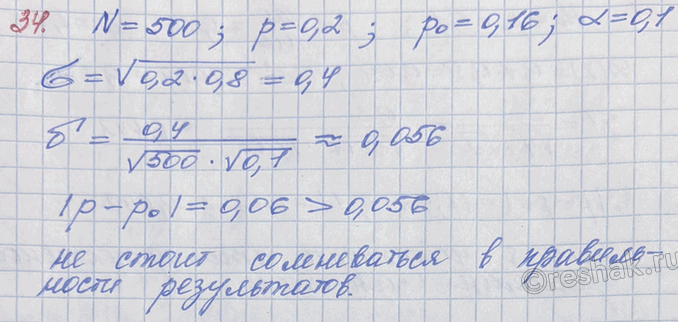 34. N = 500 ; p = 0,2 ; p₀ = 0,16 ; α = 0,1
σ = √(0,2 · 0,8) = 0,4
δ = 0,4 / (√500 · √0,1) ≈ 0,056
|p − p₀| = 0,06 > 0,056
не стоит сомневаться в правиль-
ности результатов.
©reshak.ru